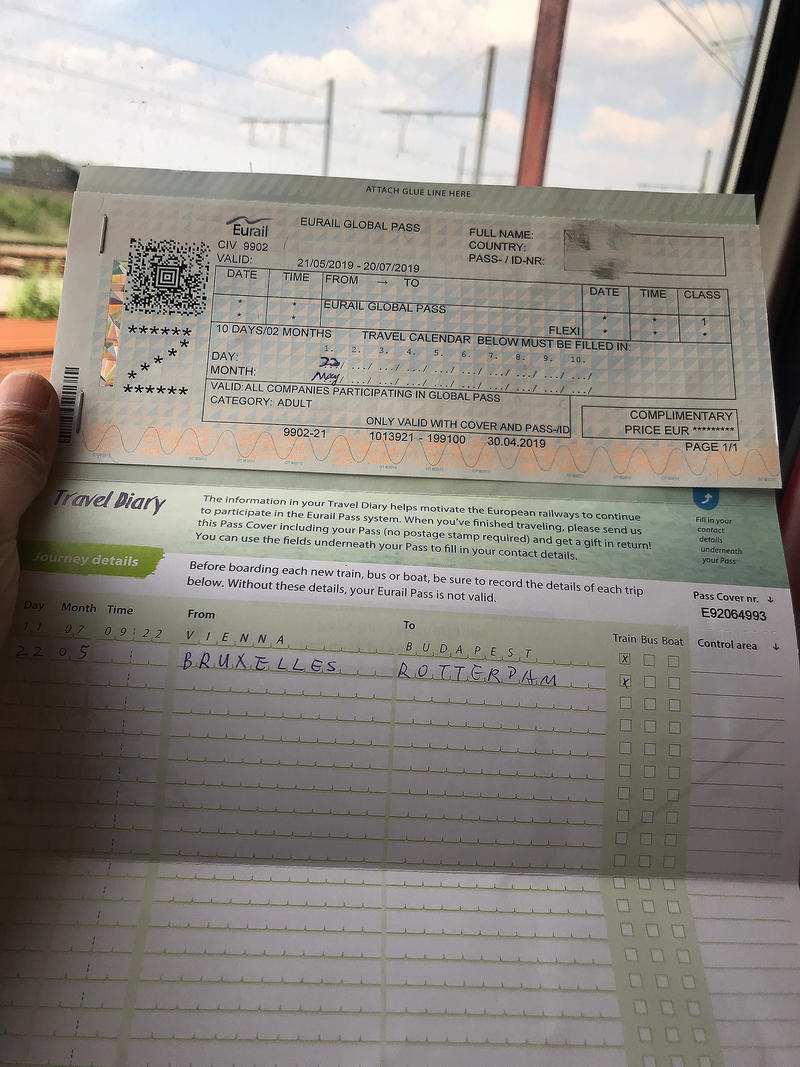 ATTACH GLUE LINE HERE
Eurail
EURAIL GLOBAL PASS
FULL NAME:
COUNTRY:
PASS- / ID-NR:
CIV 9902
VALID: 21/05/2019 - 20/07/2019
DATE TIME FROM → TO DATE TIME CLASS
* * EURAIL GLOBAL PASS * * 1
* * FLEXI * * *
******
*
* 
*
*
******
10 DAYS/02 MONTHS TRAVEL CALENDAR BELOW MUST BE FILLED IN:
1. 2. 3. 4. 5. 6. 7. 8. 9. 10.
DAY: 22/ .../ .../ .../ .../ .../ .../ .../ .../ .../
MONTH: May/ .../ .../ .../ .../ .../ .../ .../ .../ .../
VALID:ALL COMPANIES PARTICIPATING IN GLOBAL PASS
CATEGORY: ADULT
ONLY VALID WITH COVER AND PASS-/ID
COMPLIMENTARY
PRICE EUR *********
9902-21 1013921 - 199100 30.04.2019
PAGE 1/1
Travel Diary
The information in your Travel Diary helps motivate the European railways to continue
to participate in the Eurail Pass system. When you've finished traveling, please send us
this Pass Cover including your Pass (no postage stamp required) and get a gift in return!
You can use the fields underneath your Pass to fill in your contact details.
Fill in your
contact
details
underneath
your Pass
Journey details
Before boarding each new train, bus or boat, be sure to record the details of each trip
below. Without these details, your Eurail Pass is not valid.
Pass Cover nr. ↓
E92064993
Day Month Time From To Train Bus Boat Control area ↓
11 07 09:22 VIENNA BUDAPEST x
22 05 : BRUXELLES ROTTERDAM x